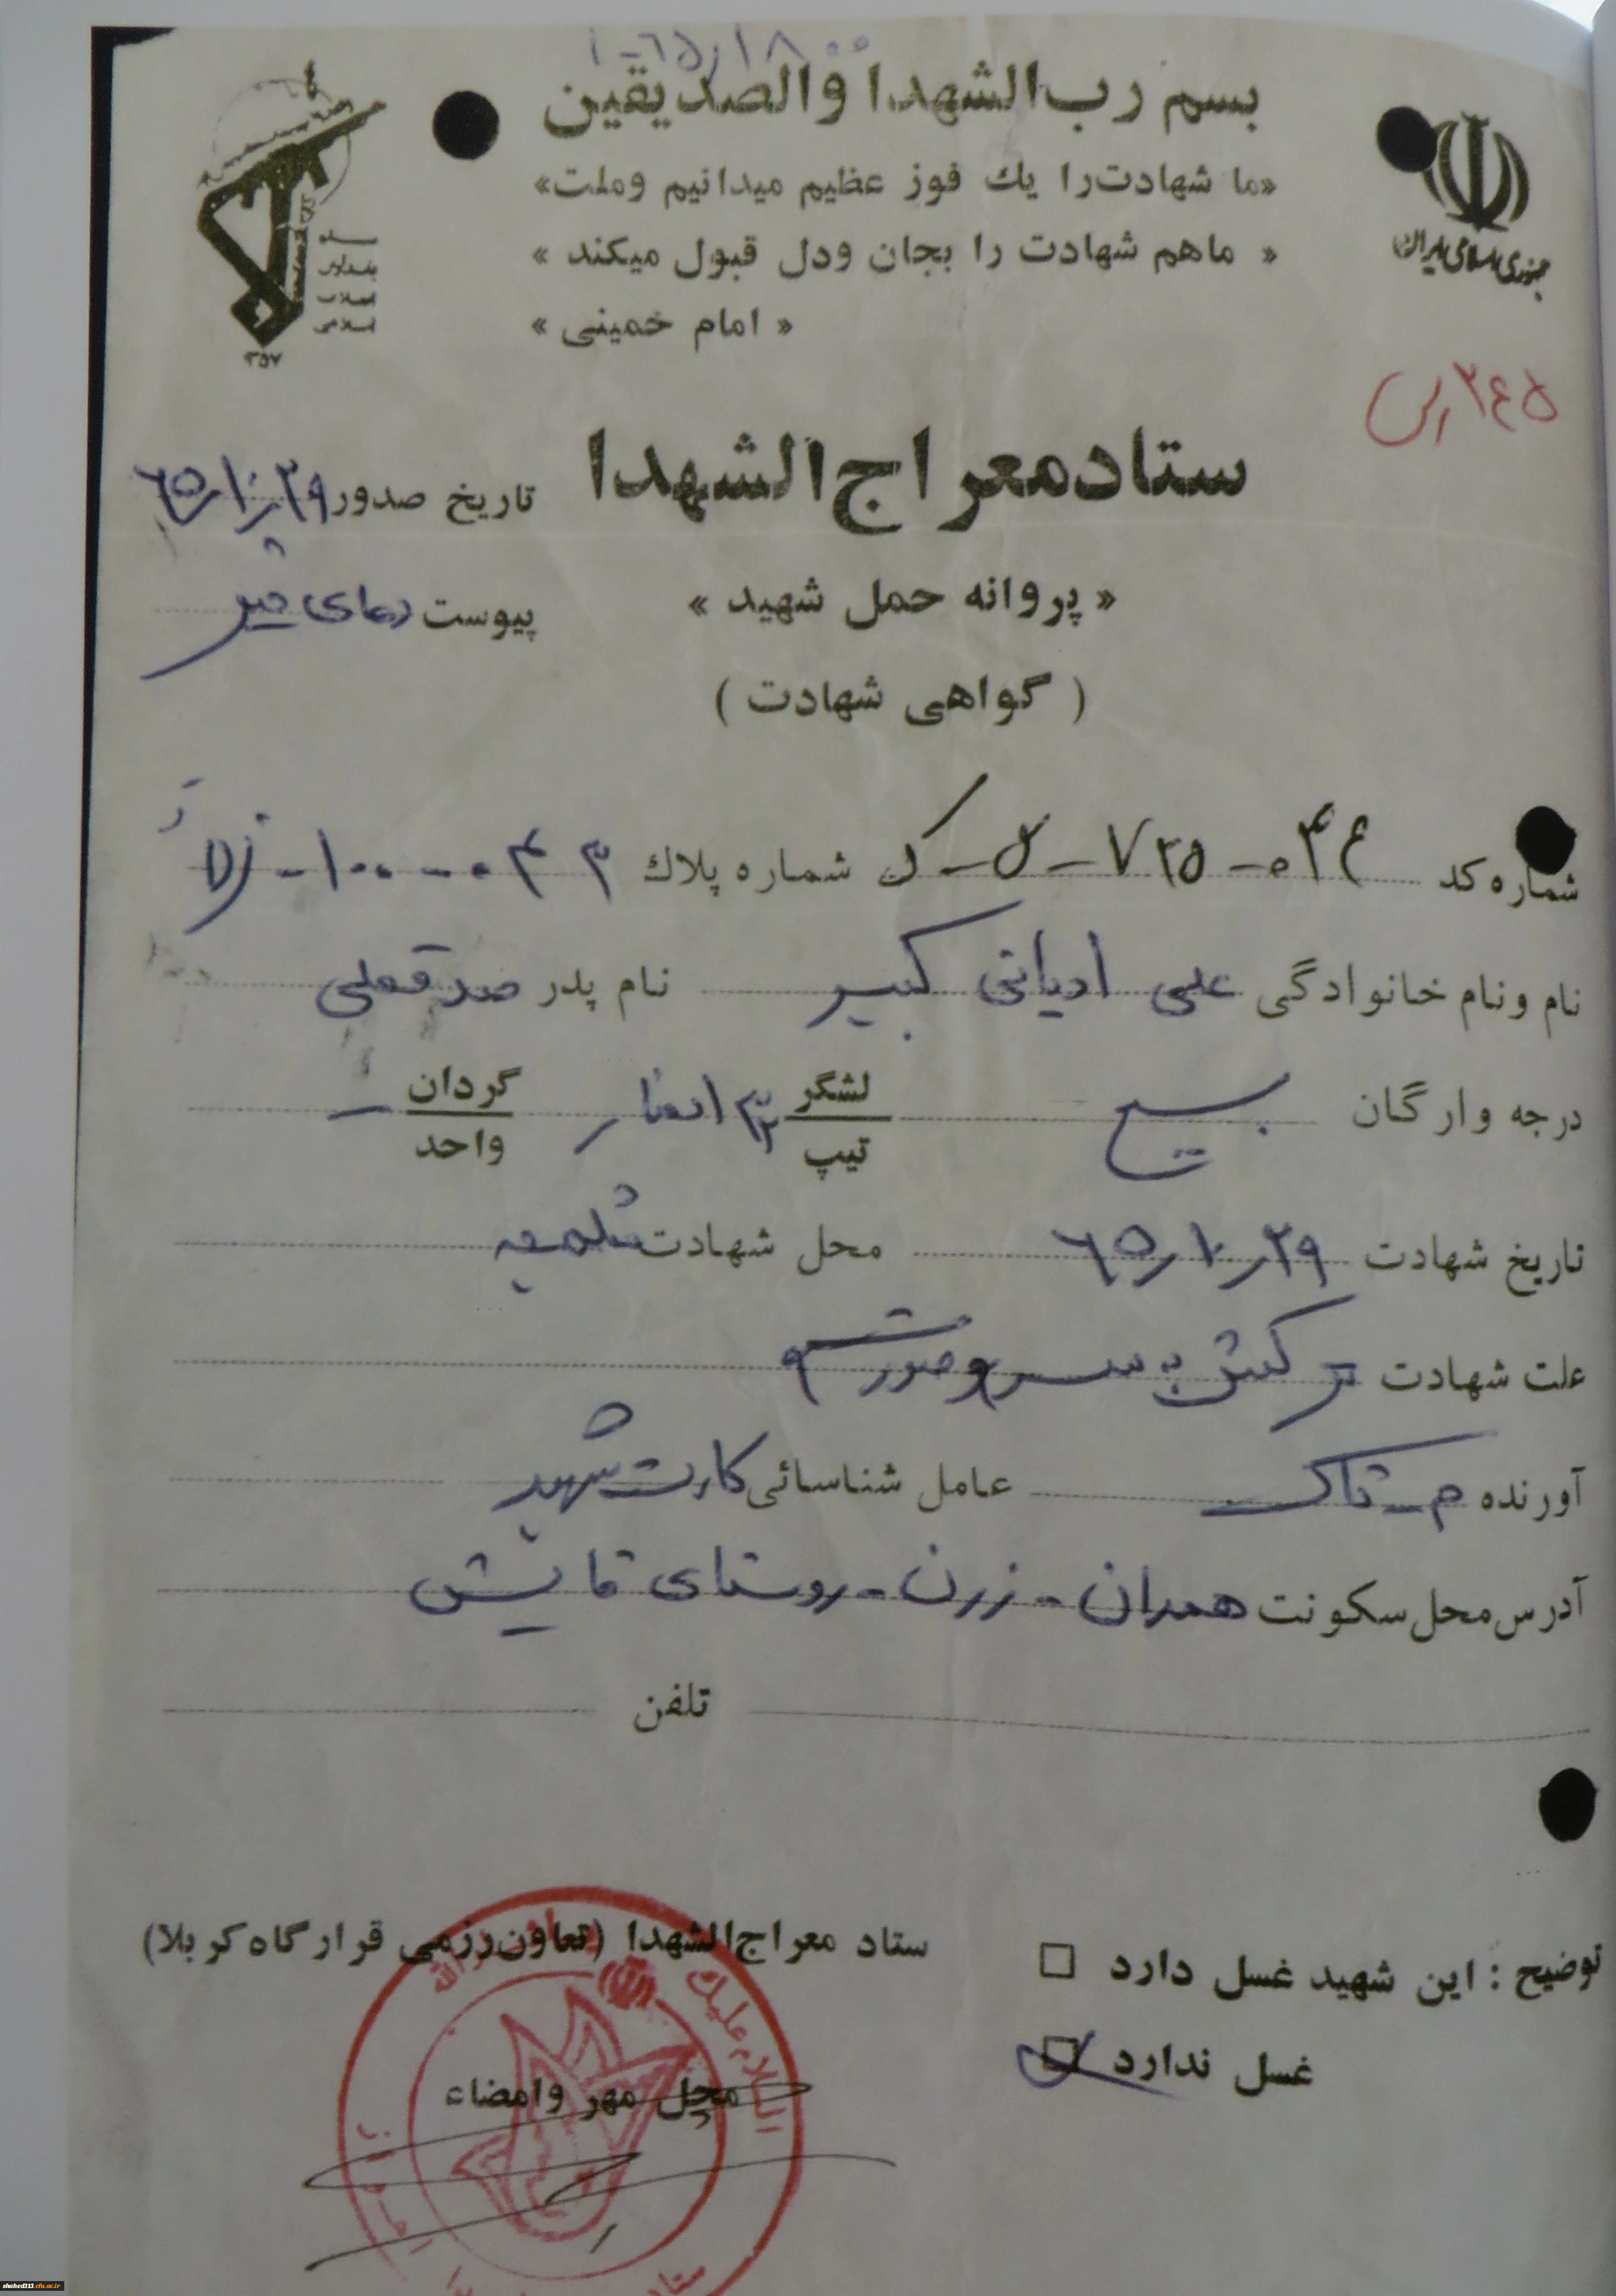 ۱-۶۵/۱۸۰۰
بسم رب الشهدا والصدیقین
«ما شهادت را یك فوز عظیم میدانیم وملت»
« ماهم شهادت را بجان ودل قبول میکند »
« امام خمینی »
جمهوری اسلامی ایران
سپاه
پاسداران
انقلاب
اسلامی
۳۵۷
۳۴۵/س
ستاد معراج الشهدا
تاریخ صدور ۶۵/۱۰/۲۹
« پروانه حمل شهید »
پیوست
( گواهی شهادت )
شماره کد شماره پلاك
نام و نام خانوادگی علی ادیانی کبیر نام پدر صدقعلی
درجه وارگان بسیج لشگر تیپ ۳۲ انصار گردان واحد –
تاریخ شهادت ۶۵/۱۰/۲۹ محل شهادت شلمچه
علت شهادت ترکش به سر و صورت
آورنده م-تاک عامل شناسائی کارت شهید
آدرس محل سکونت همدان - رزن - روستای قایش
تلفن
توضیح : این شهید غسل دارد □
غسل ندارد ☑
ستاد معراج الشهدا (تعاون رزمی قرارگاه کربلا)
محل مهر وامضاء
السلام علیك
الله
ستاد
shahed313.cfu.ac.ir